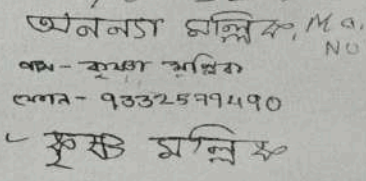 অনন্যা মল্লিক, M a.
NO
বাবা - কৃষ্ণা মল্লিক
ফোন - 9332579490
কৃষ্ণ মল্লিক